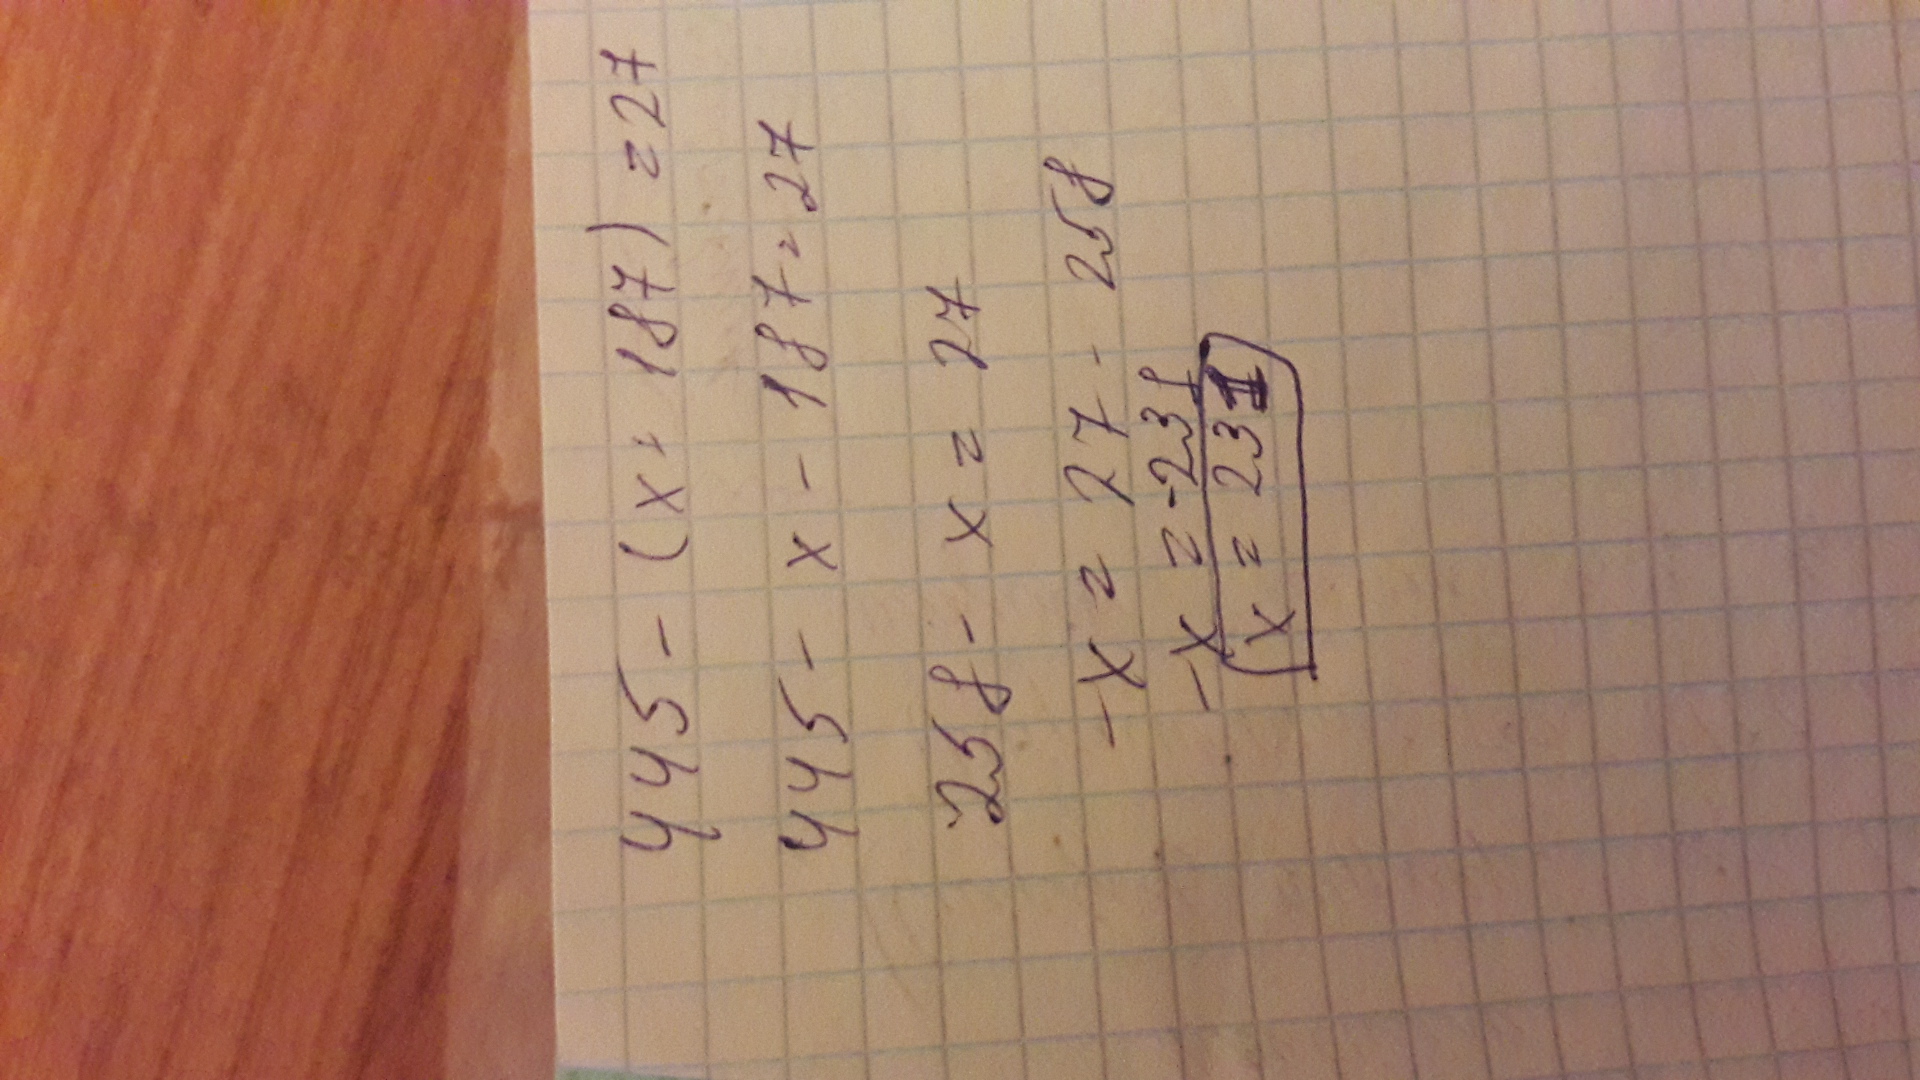 445 - (x + 187) = 27
445 - x - 187 = 27
258 - x = 27
-x = 27 - 258
-x = -231
x = 231